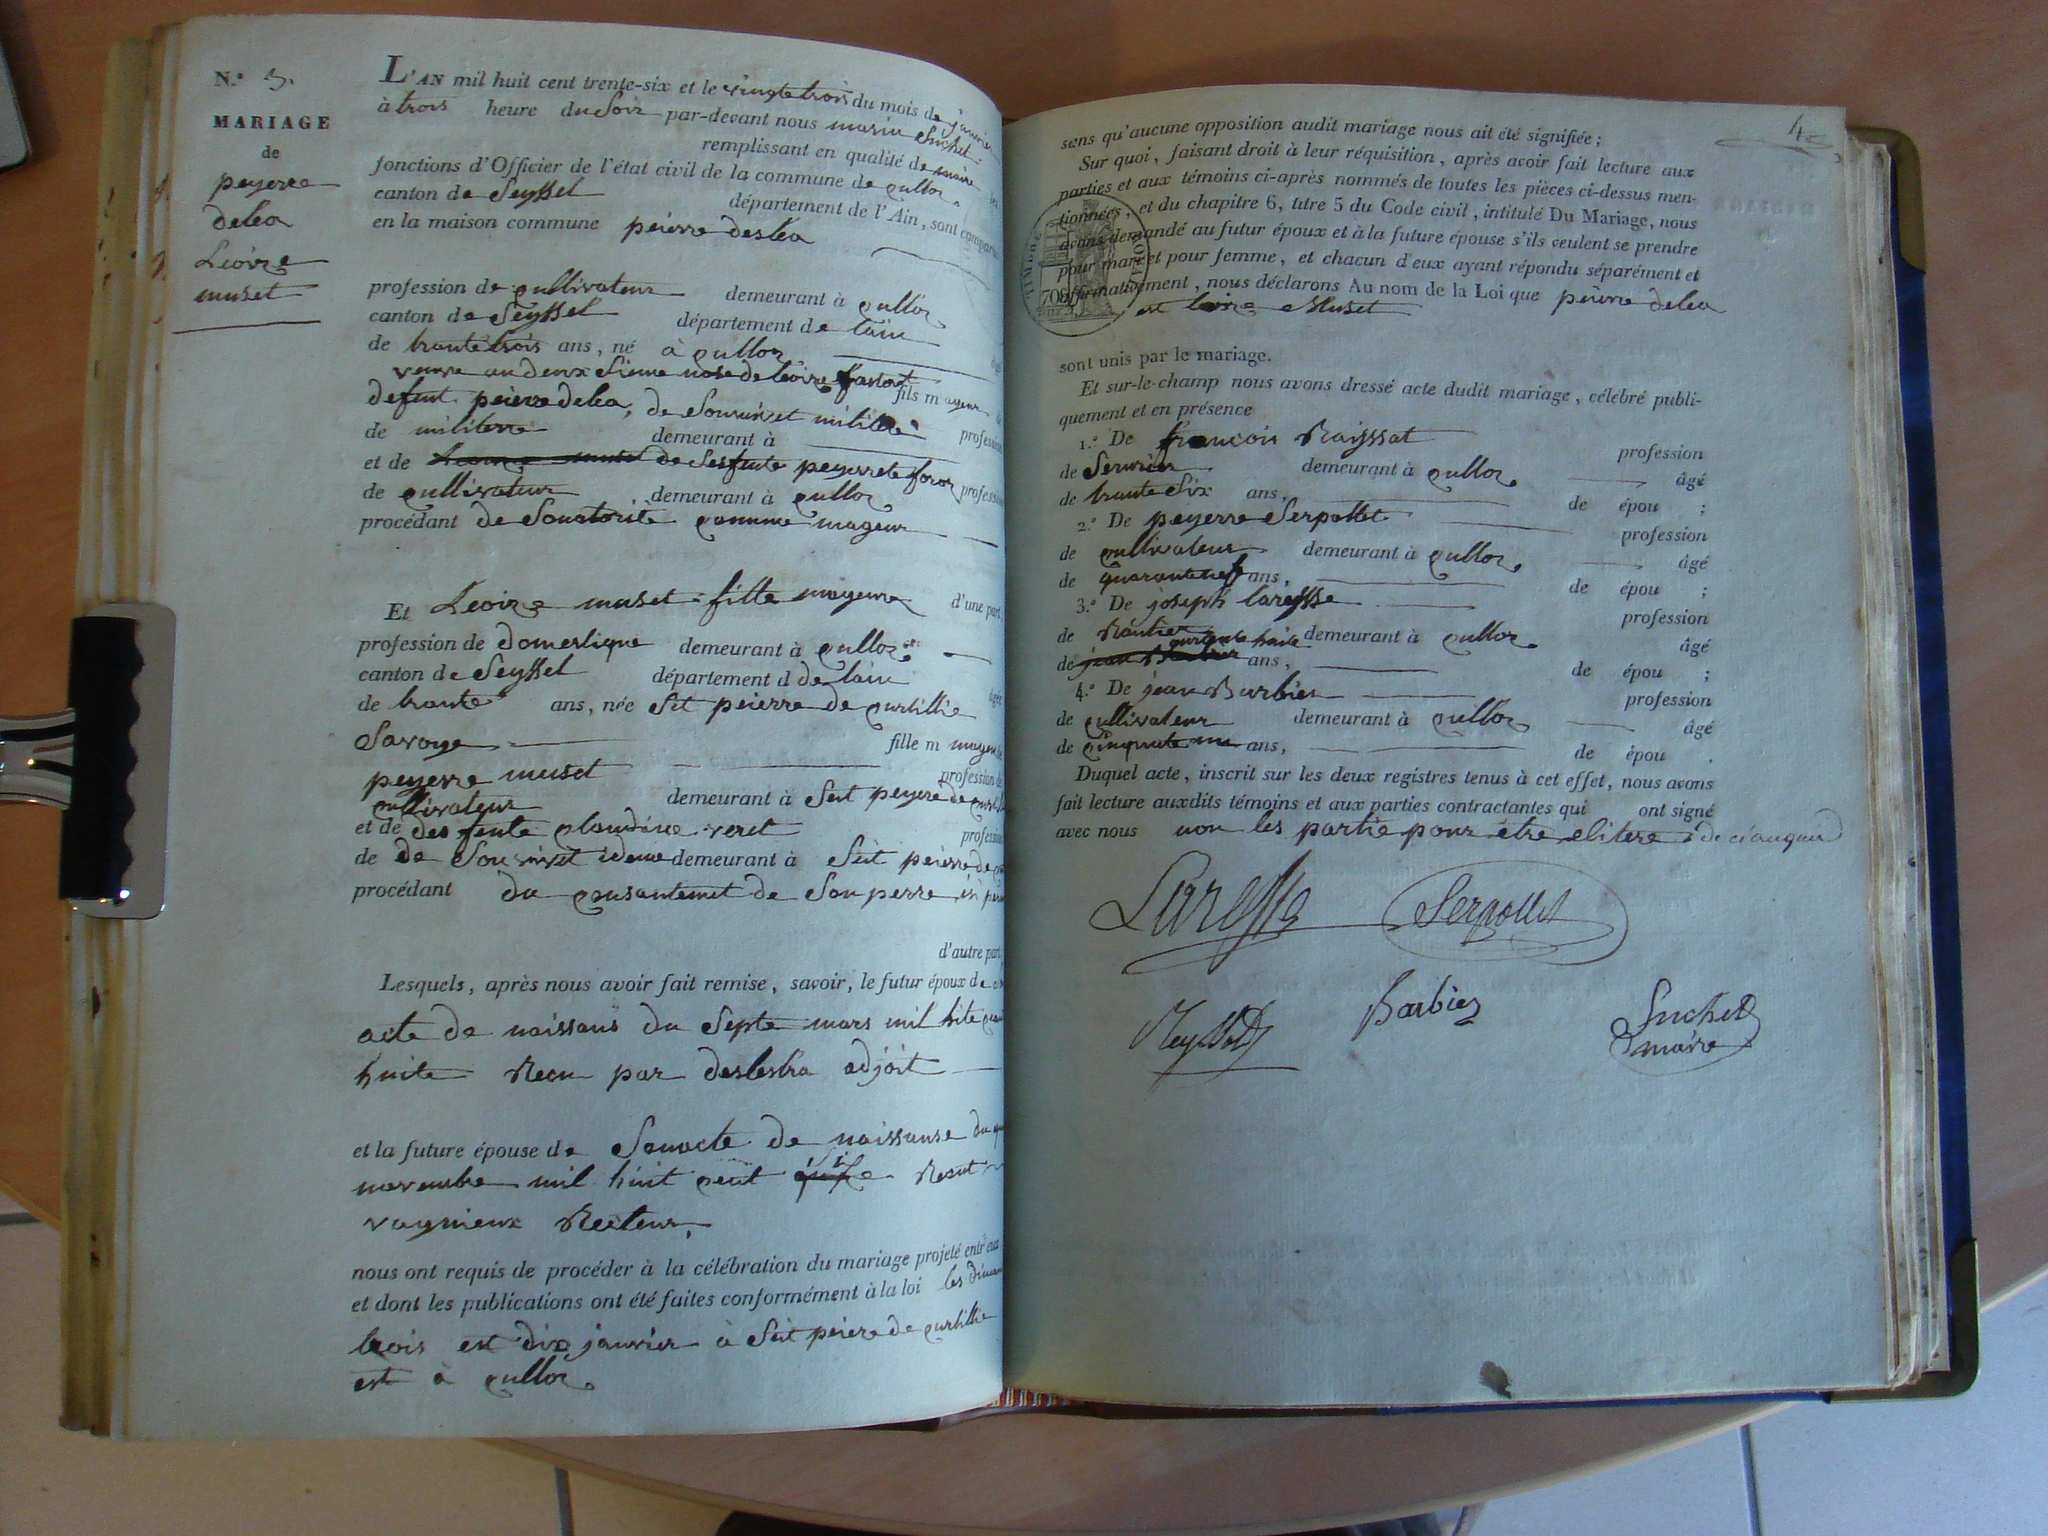 N.º 3.
MARIAGE
de
peyerre
delea
Leoire
muset
L'AN mil huit cent trente-six et le vingte trois du mois de janvier
à trois heure du Soir par-devant nous marin Suchet
remplissant en qualité de maire
fonctions d'Officier de l'état civil de la commune de culloz
canton de Seyssel département de l'Ain, sont comparus
en la maison commune peierre deslea
profession de cultivateur demeurant à culloz
canton de Seyssel département de lain
de trante trois ans, né à culloz
veuve au deux Sieme nose de leoire
defunt peierre delea, de Son vivet militere fils m ageur
de militerre demeurant à profession
et de de Desfente peyerrete foroz profession
de cultivateur demeurant à culloz
procédant de Son otorite comme mageur
d'une part,
Et Leoire muset fille mageure
profession de domestique demeurant à culloz
canton de Seyssel département d de lain
de trante ans, née Set peierre de curtillie
Savoye fille m mageure
peyerre muset profession de
cultivateur demeurant à Seit peyere de curtil
et de des fente claudine veret profession
de de Son vivet idem demeurant à Seit peierre de
procédant du consantemet de Son perre
d'autre part
Lesquels, après nous avoir fait remise, savoir, le futur époux de
acte de naissans du Septe mars mil hite
huite Recu par deslestra adjoit
et la future épouse de Son acte de naissanse du
novembre mil huit ceut Recut
vagnieux Recteur,
nous ont requis de procéder à la célébration du mariage projeté entr'eux
et dont les publications ont été faites conformément à la loi les
trois est dix janvier à Seit peiere de curtillie
est à culloz
4
sans qu'aucune opposition audit mariage nous ait été signifiée;
Sur quoi, faisant droit à leur réquisition, après avoir fait lecture aux
parties et aux témoins ci-après nommés de toutes les pièces ci-dessus men-
tionnées, et du chapitre 6, titre 5 du Code civil, intitulé Du Mariage, nous
avons demandé au futur époux et à la future épouse s'ils veulent se prendre
pour mari et pour femme, et chacun d'eux ayant répondu séparément et
affirmativement, nous déclarons Au nom de la Loi que peierre delea
est loire Muset
sont unis par le mariage.
Et sur-le-champ nous avons dressé acte dudit mariage, célébré publi-
quement et en présence
1.º De francois Raissat profession
de Serurier demeurant à culloz âgé
de trante Six ans, de épou ;
2.º De peyerre Serpollet profession
de cultivateur demeurant à culloz âgé
de quarante nef ans, de épou ;
3.º De joseph laresse profession
de Rantier demeurant à culloz âgé
de jean Barbier quarante huite ans, de épou ;
4.º De jean Burbier profession
de cultivateur demeurant à culloz âgé
de cinquate un ans, de épou .
Duquel acte, inscrit sur les deux registres tenus à cet effet, nous avons
fait lecture auxdits témoins et aux parties contractantes qui ont signé
avec nous non les partie pour être elitere de ci anquis
Laresse Serpollet
Reyssat Barbier Suchet
maire